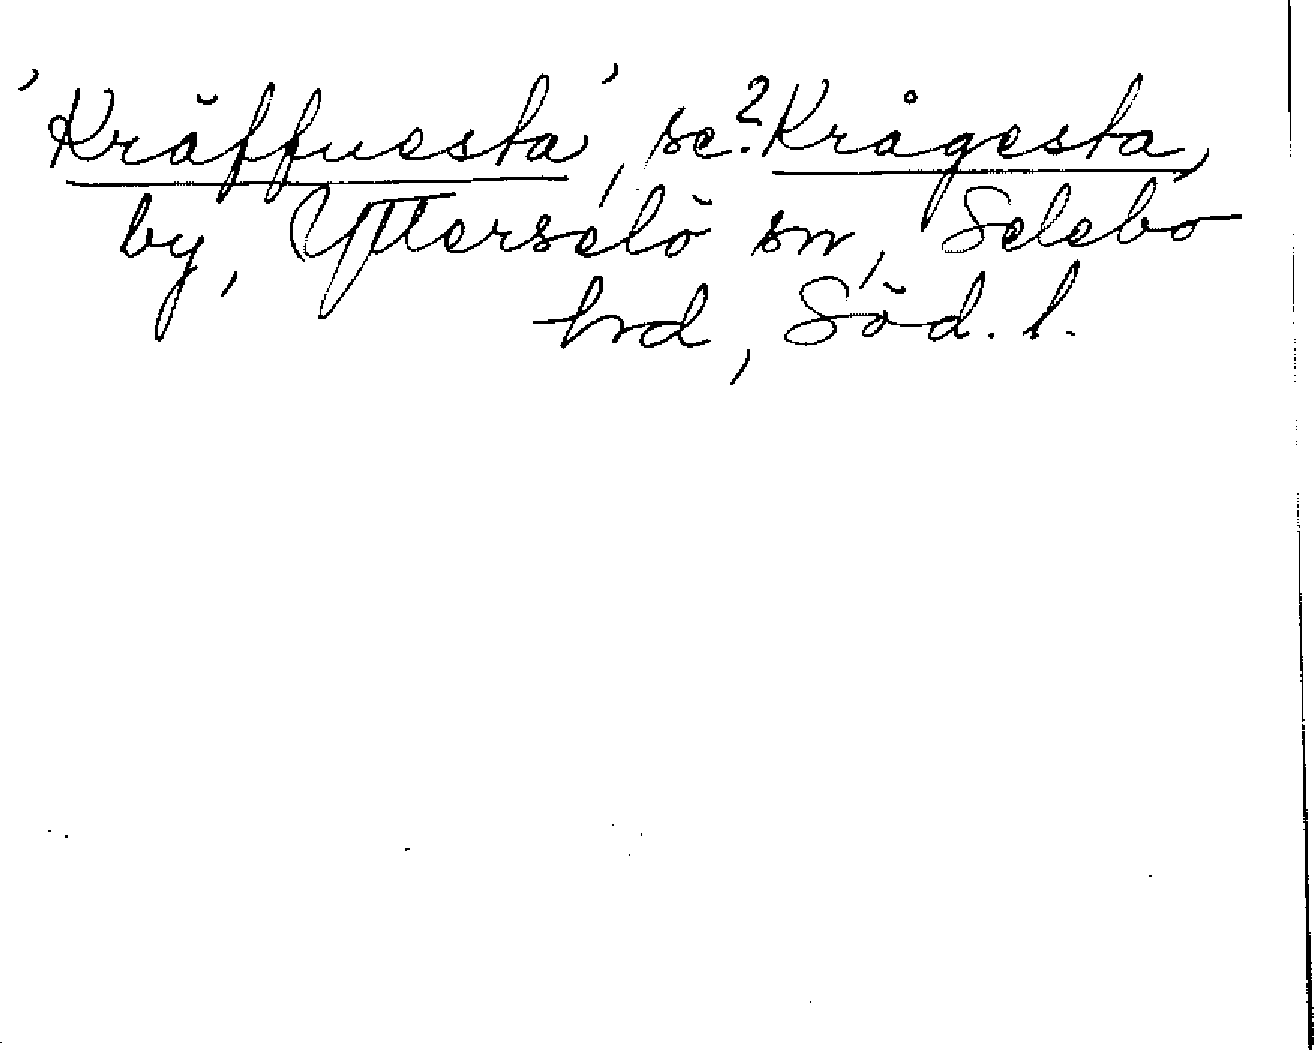 'Kräffuesta', se? Krågesta,
by, Ytterselö sn, Selebo
hrd, Söd. l.